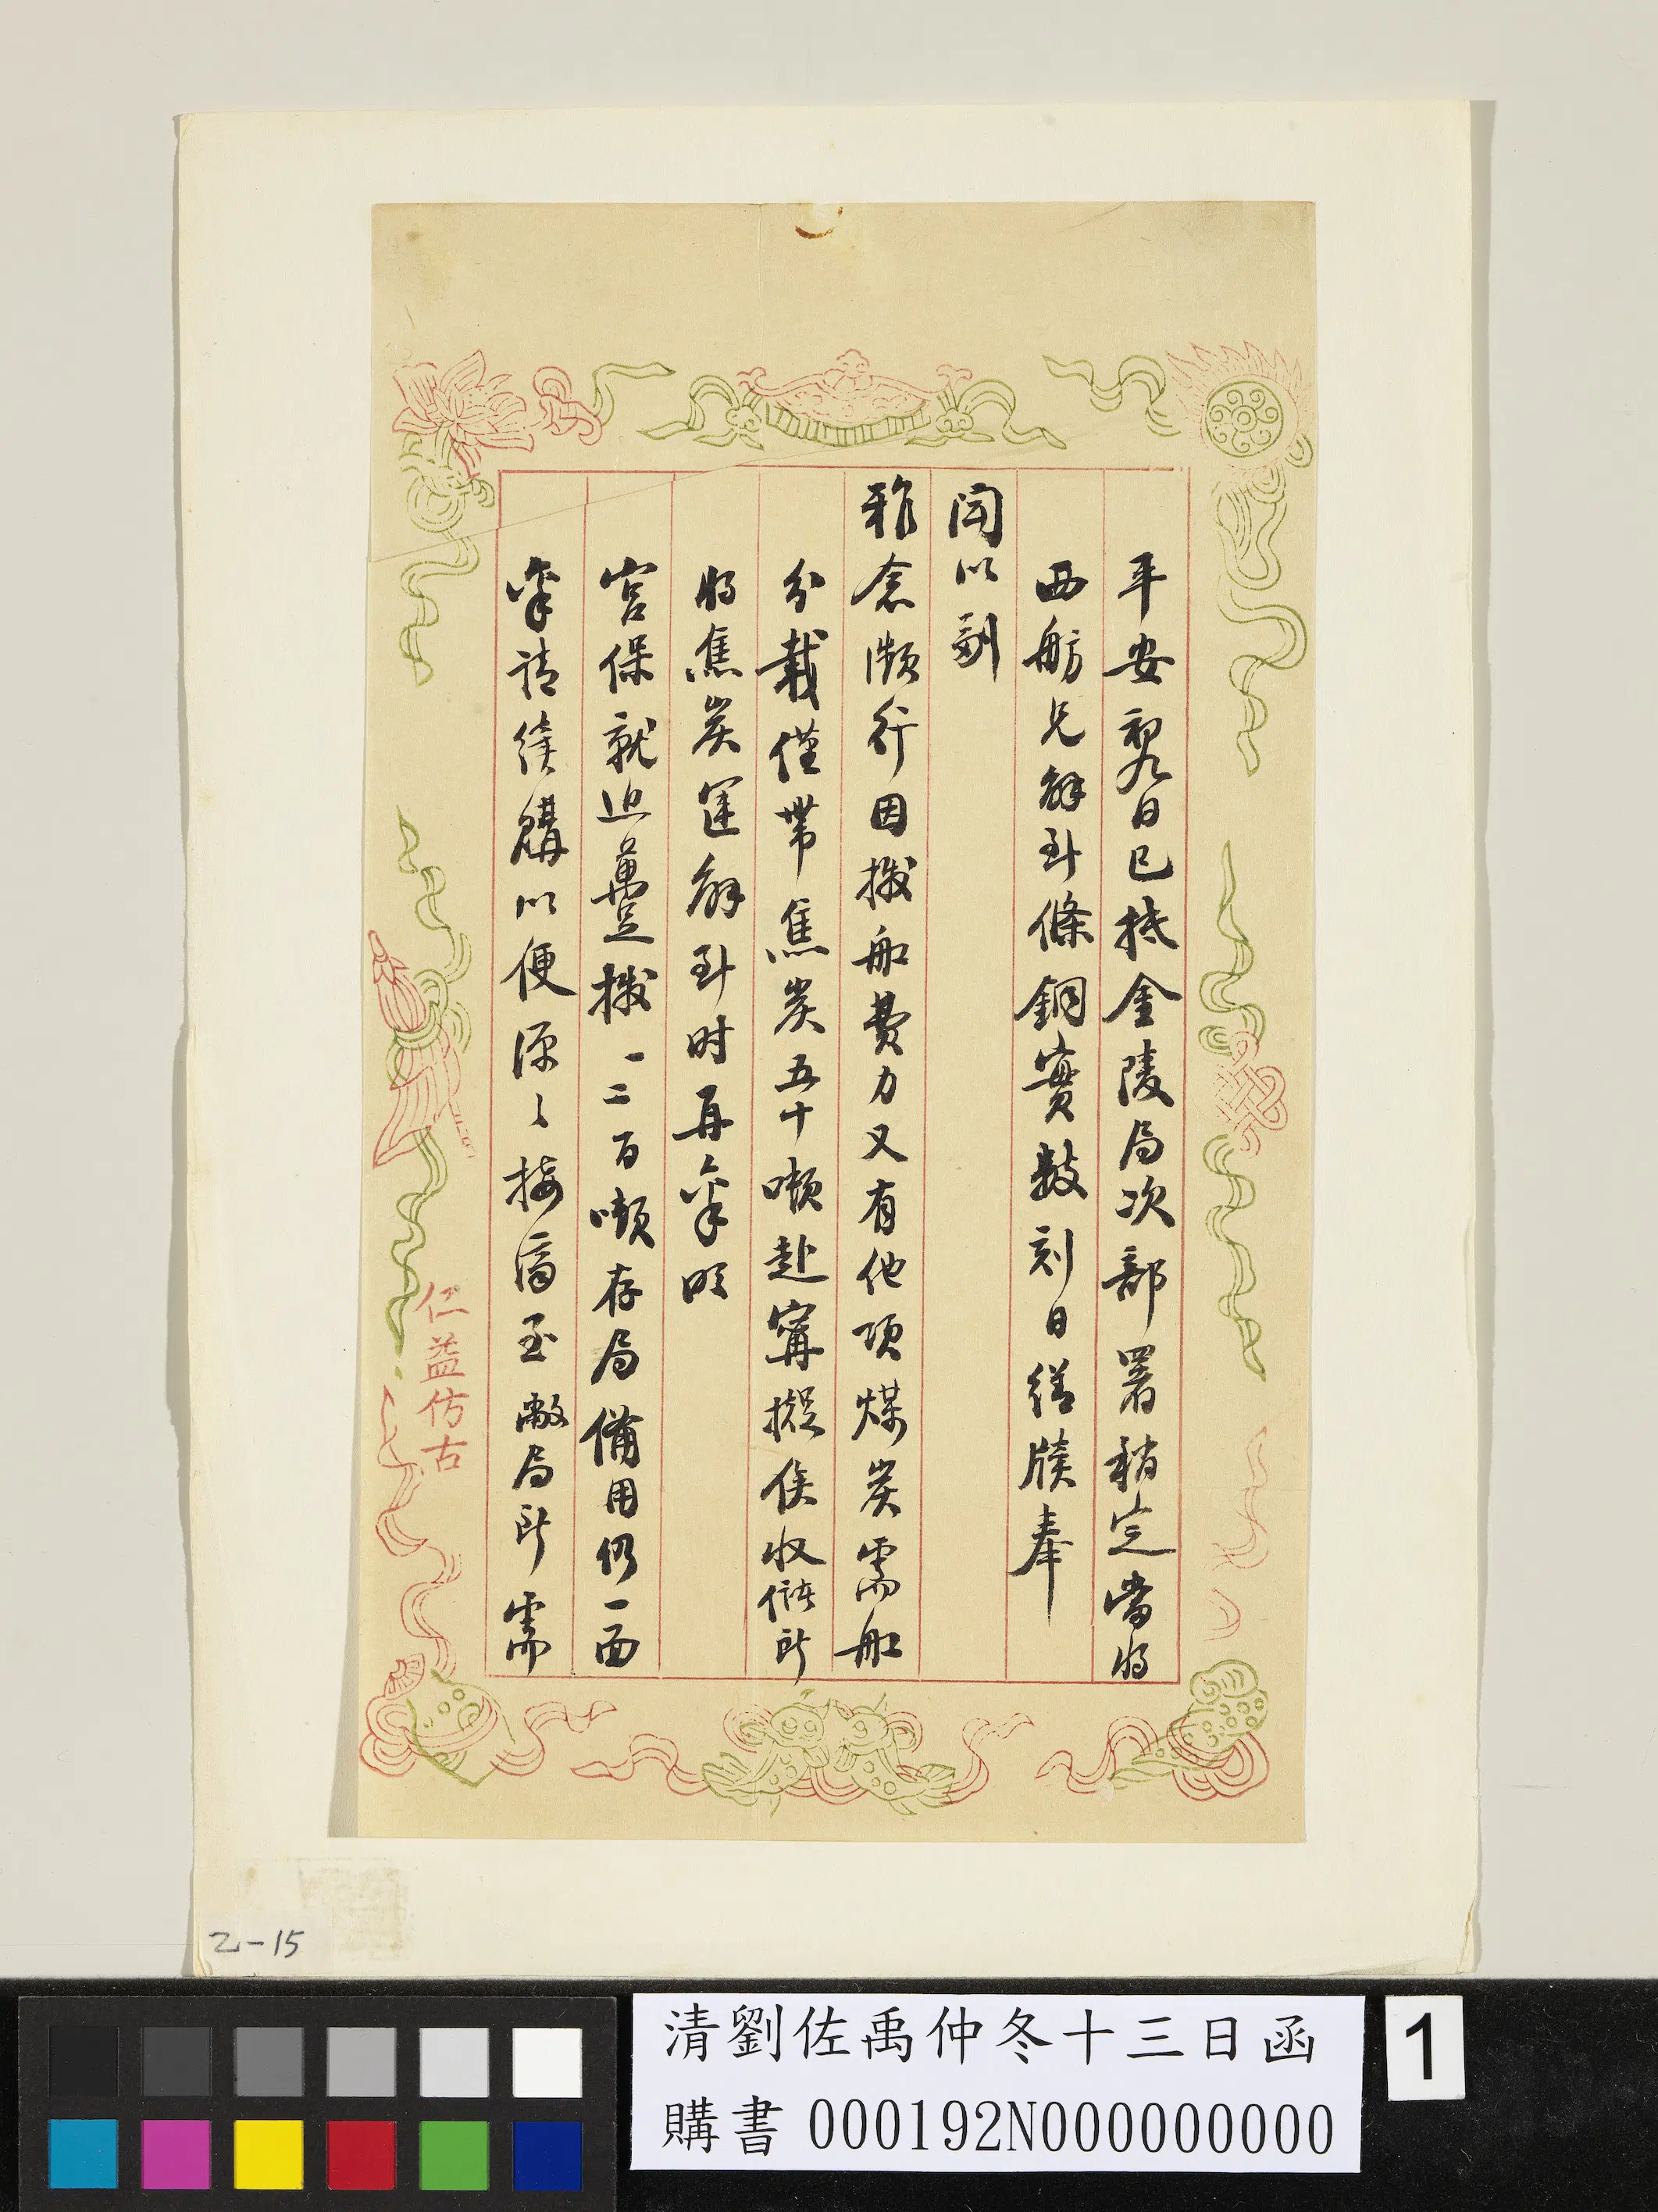 平安初九日已抵金陵局次部署稍定當將
西舫兄解到條銅實數刻日繕牘奉
聞以副
雅念瀕行因撥船費力又有他項煤炭需船
分載僅帶焦炭五十噸赴寧擬俟收儲所
將焦炭運解到时再稟明
宮保就近躉撥一二百噸存局備用仍一面
稟請續購以便源〻接濟至敝局所需
仁益仿古
乙-15
清劉佐禹仲冬十三日函
購書 000192N000000000
1